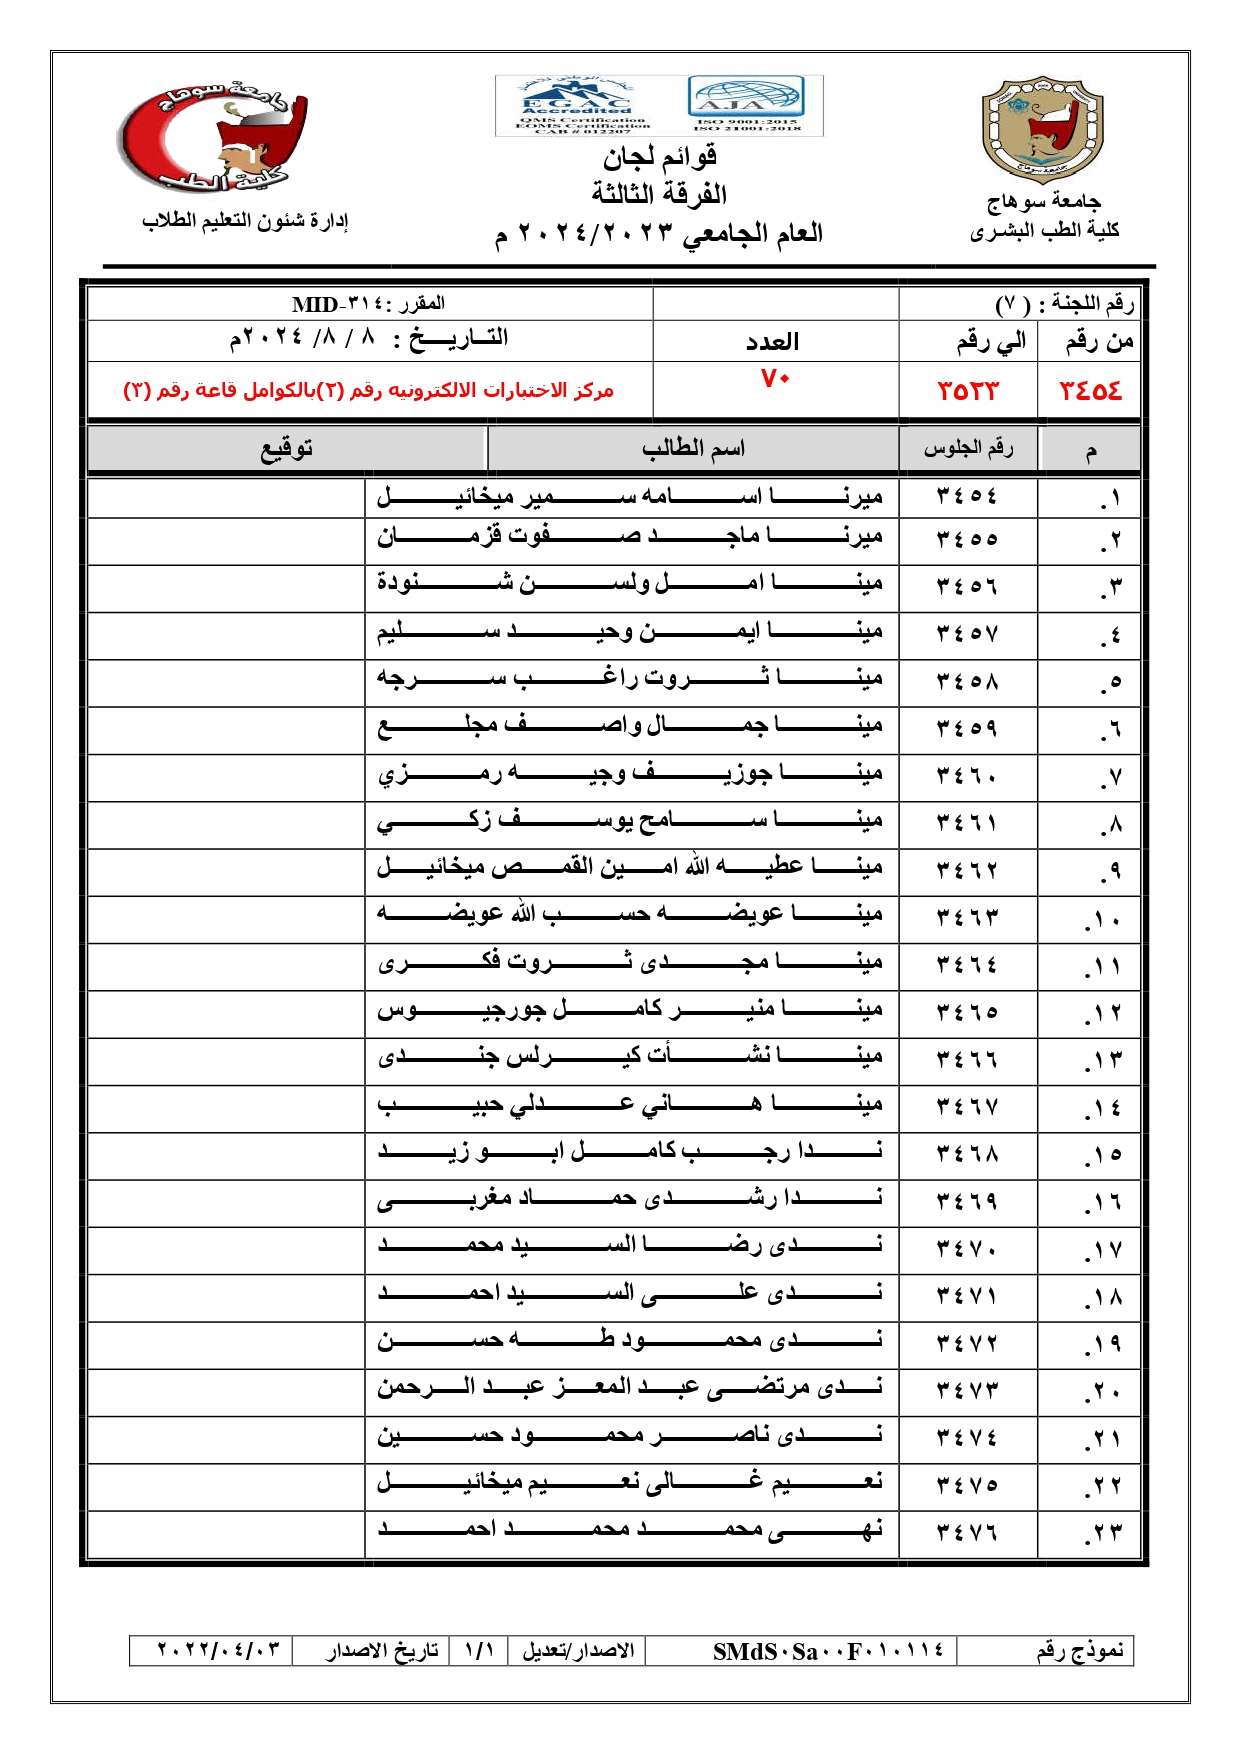 جامعة سوهاج
كلية الطب البشرى
EGAC
Accredited
QMS Certification
EOMS Certification
CAB # 012207
AJA
ISO 9001:2015
ISO 21001:2018
قوائم لجان
الفرقة الثالثة
العام الجامعي ٢٠٢٤/٢٠٢٣ م
جامعة سوهاج
كلية الطب
إدارة شئون التعليم الطلاب
رقم اللجنة : ( ٧) المقرر :MID-٣١٤
من رقم الي رقم العدد التــاريــــخ : ٨ / ٨/ ٢٠٢٤م
٣٤٥٤ ٣٥٢٣ ٧٠ مركز الاختبارات الالكترونيه رقم (٢)بالكوامل قاعة رقم (٣)
م رقم الجلوس اسم الطالب توقيع
١. ٣٤٥٤ ميرنا اسامه سمير ميخائيل
٢. ٣٤٥٥ ميرنا ماجد صفوت قزمان
٣. ٣٤٥٦ مينا امل ولسن شنودة
٤. ٣٤٥٧ مينا ايمن وحيد سليم
٥. ٣٤٥٨ مينا ثروت راغب سرجه
٦. ٣٤٥٩ مينا جمال واصف مجلع
٧. ٣٤٦٠ مينا جوزيف وجيه رمزي
٨. ٣٤٦١ مينا سامح يوسف زكي
٩. ٣٤٦٢ مينا عطيه الله امين القمص ميخائيل
١٠. ٣٤٦٣ مينا عويضه حسب الله عويضه
١١. ٣٤٦٤ مينا مجدى ثروت فكرى
١٢. ٣٤٦٥ مينا منير كامل جورجيوس
١٣. ٣٤٦٦ مينا نشأت كيرلس جندى
١٤. ٣٤٦٧ مينا هاني عدلي حبيب
١٥. ٣٤٦٨ ندا رجب كامل ابو زيد
١٦. ٣٤٦٩ ندا رشدى حماد مغربى
١٧. ٣٤٧٠ ندى رضا السيد محمد
١٨. ٣٤٧١ ندى على السيد احمد
١٩. ٣٤٧٢ ندى محمود طه حسن
٢٠. ٣٤٧٣ ندى مرتضى عبد المعز عبد الرحمن
٢١. ٣٤٧٤ ندى ناصر محمود حسين
٢٢. ٣٤٧٥ نعيم غالى نعيم ميخائيل
٢٣. ٣٤٧٦ نهى محمد محمد احمد
نموذج رقم SMdS٠Sa٠٠F٠١٠١١٤ الاصدار/تعديل ١/١ تاريخ الاصدار ٢٠٢٢/٠٤/٠٣